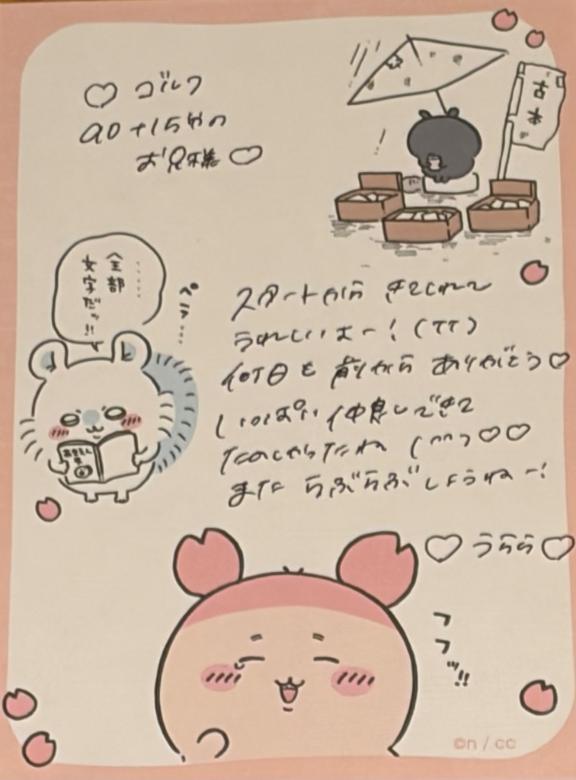 ♡ ゴルフ
90+15分の
お兄様♡
古本
……
全部
文字だッ!!
ペラ…
スタートから きてくれて
うれしいよー！(TT)
何日も 前から ありがとう♡
いっぱい 仲良しできて
たのしかったね (^^)♡♡
また らぶらぶしようねー！
♡ うらら♡
フフッ!!
©n / cc